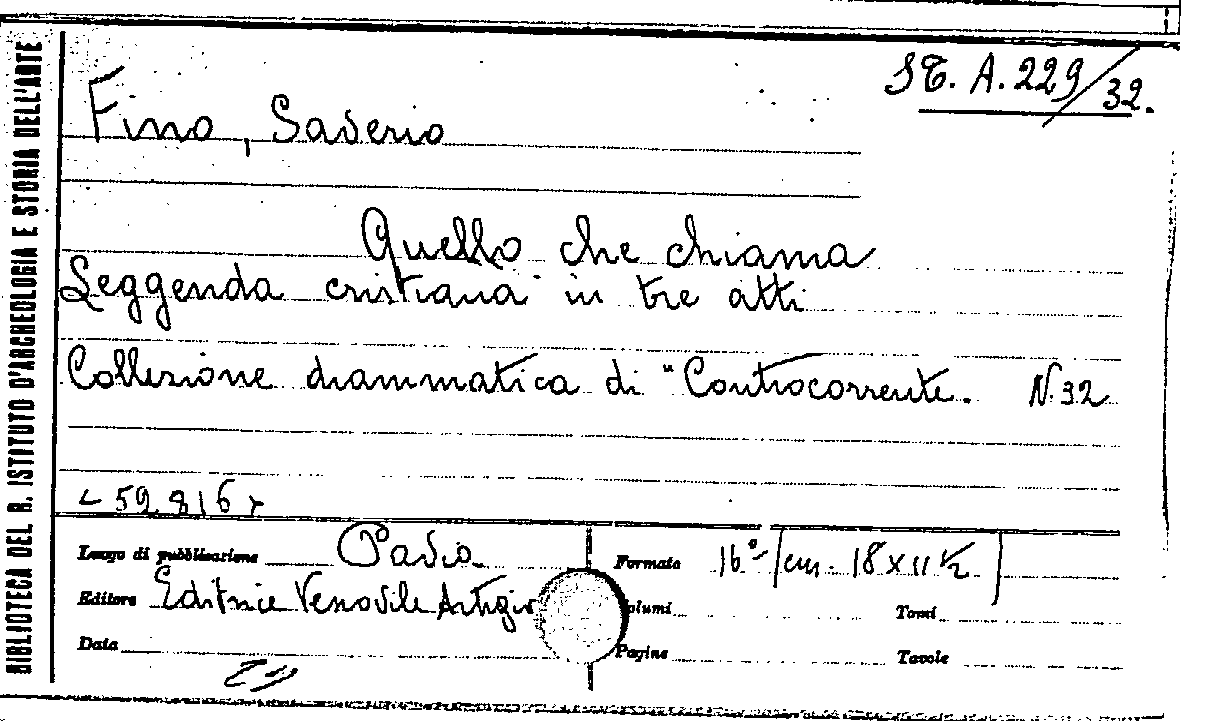 BIBLIOTECA DEL R. ISTITUTO D'ARCHEOLOGIA E STORIA DELL'ARTE
ST. A. 229/32.
Fino, Saverio
Quello che chiama
Leggenda cristiana in tre atti
Collezione drammatica di "Controcorrente. N. 32
<59816>
Luogo di pubblicazione Pavia Formato 16° [cm. 18 x 11 1/2]
Editore Editrice Artigia Volumi Tomi
Data Pagine Tavole